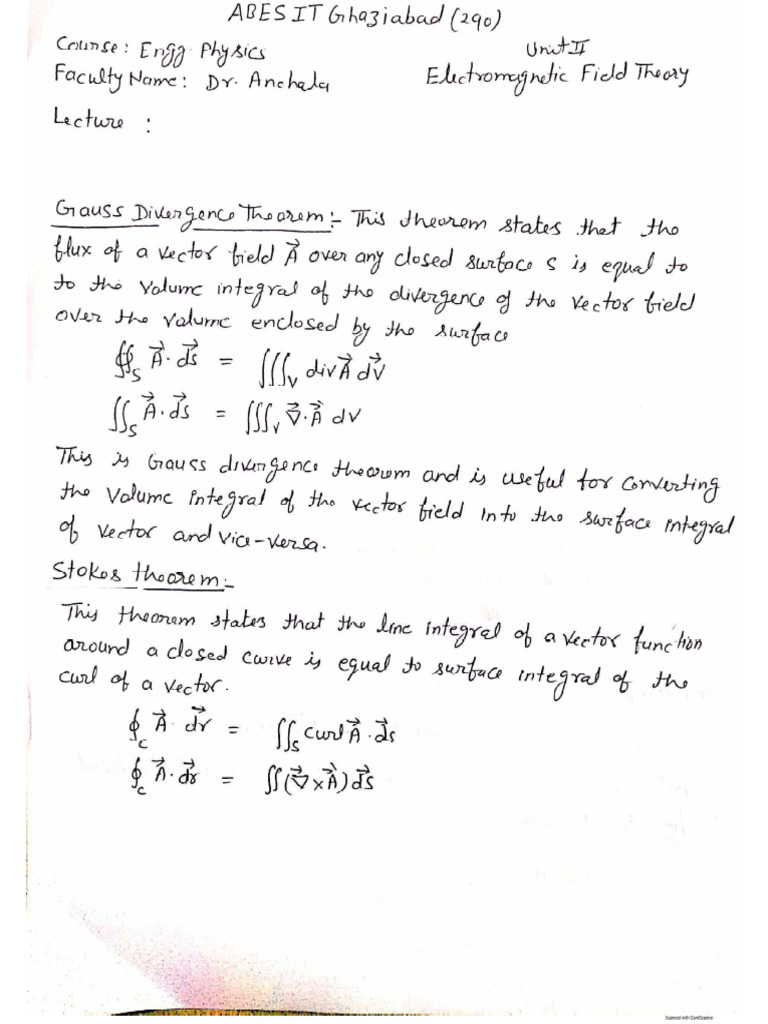 ABES IT Ghaziabad (290)
Course: Engg Physics Unit II
Faculty Name: Dr. Anchala Electromagnetic Field Theory
Lecture :
Gauss Divergence Theorem:- This theorem states that the
flux of a vector field A⃗ over any closed surface S is equal to
to the volume integral of the divergence of the vector field
over the volume enclosed by the surface
∯_S A⃗. ds⃗ = ∭_V div A⃗ dV⃗
∬_S A⃗. ds⃗ = ∭_V ∇⃗.A⃗ dV
This is Gauss divergence theorem and is useful for converting
the volume integral of the vector field into the surface integral
of vector and vice-versa.
Stokes theorem:-
This theorem states that the line integral of a vector function
around a closed curve is equal to surface integral of the
curl of a vector.
∮_C A⃗. dr⃗ = ∬_S curl A⃗. ds⃗
∮_C A⃗. dr⃗ = ∬(∇⃗×A⃗) ds⃗
Scanned with CamScanner